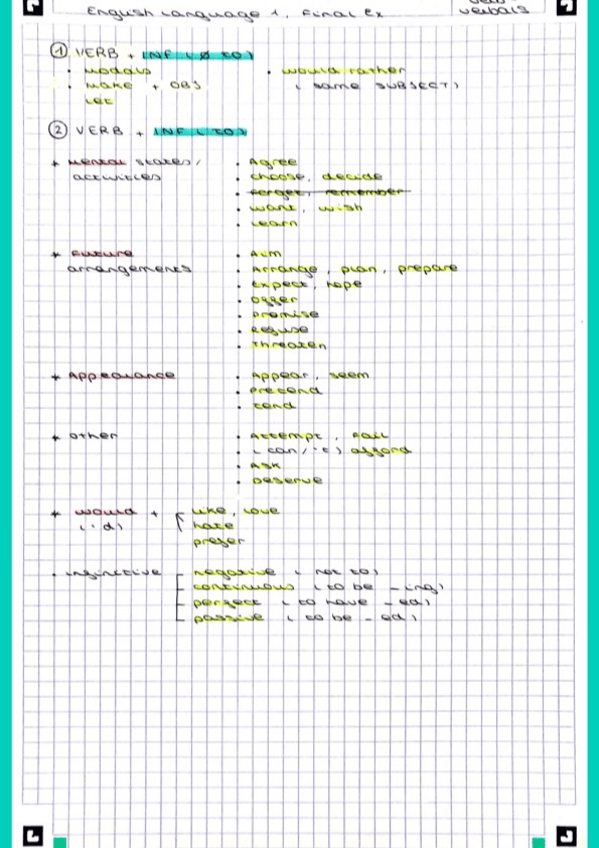 English Language 1, Final Ex
verbals
① VERB + INF (Ø TO)
• modals • would rather
• make + OBJ ( same SUBJECT)
let
② VERB + INF ( TO)
* Mental states/ • Agree
activities • choose, decide
• forget, remember
• want, wish
• learn
* Future • Aim
arrangements • Arrange, plan, prepare
• Expect, hope
• Offer
• promise
• Refuse
• threaten
* Appearance • Appear, seem
• pretend
• tend
* other • Attempt, Fail
• (can/'t) afford
• Ask
• Deserve
* would + like, love
(-d) hate
prefer
• infinitive negative ( not to)
continuous ( to be -ing)
perfect ( to have -ed)
passive ( to be -ed)